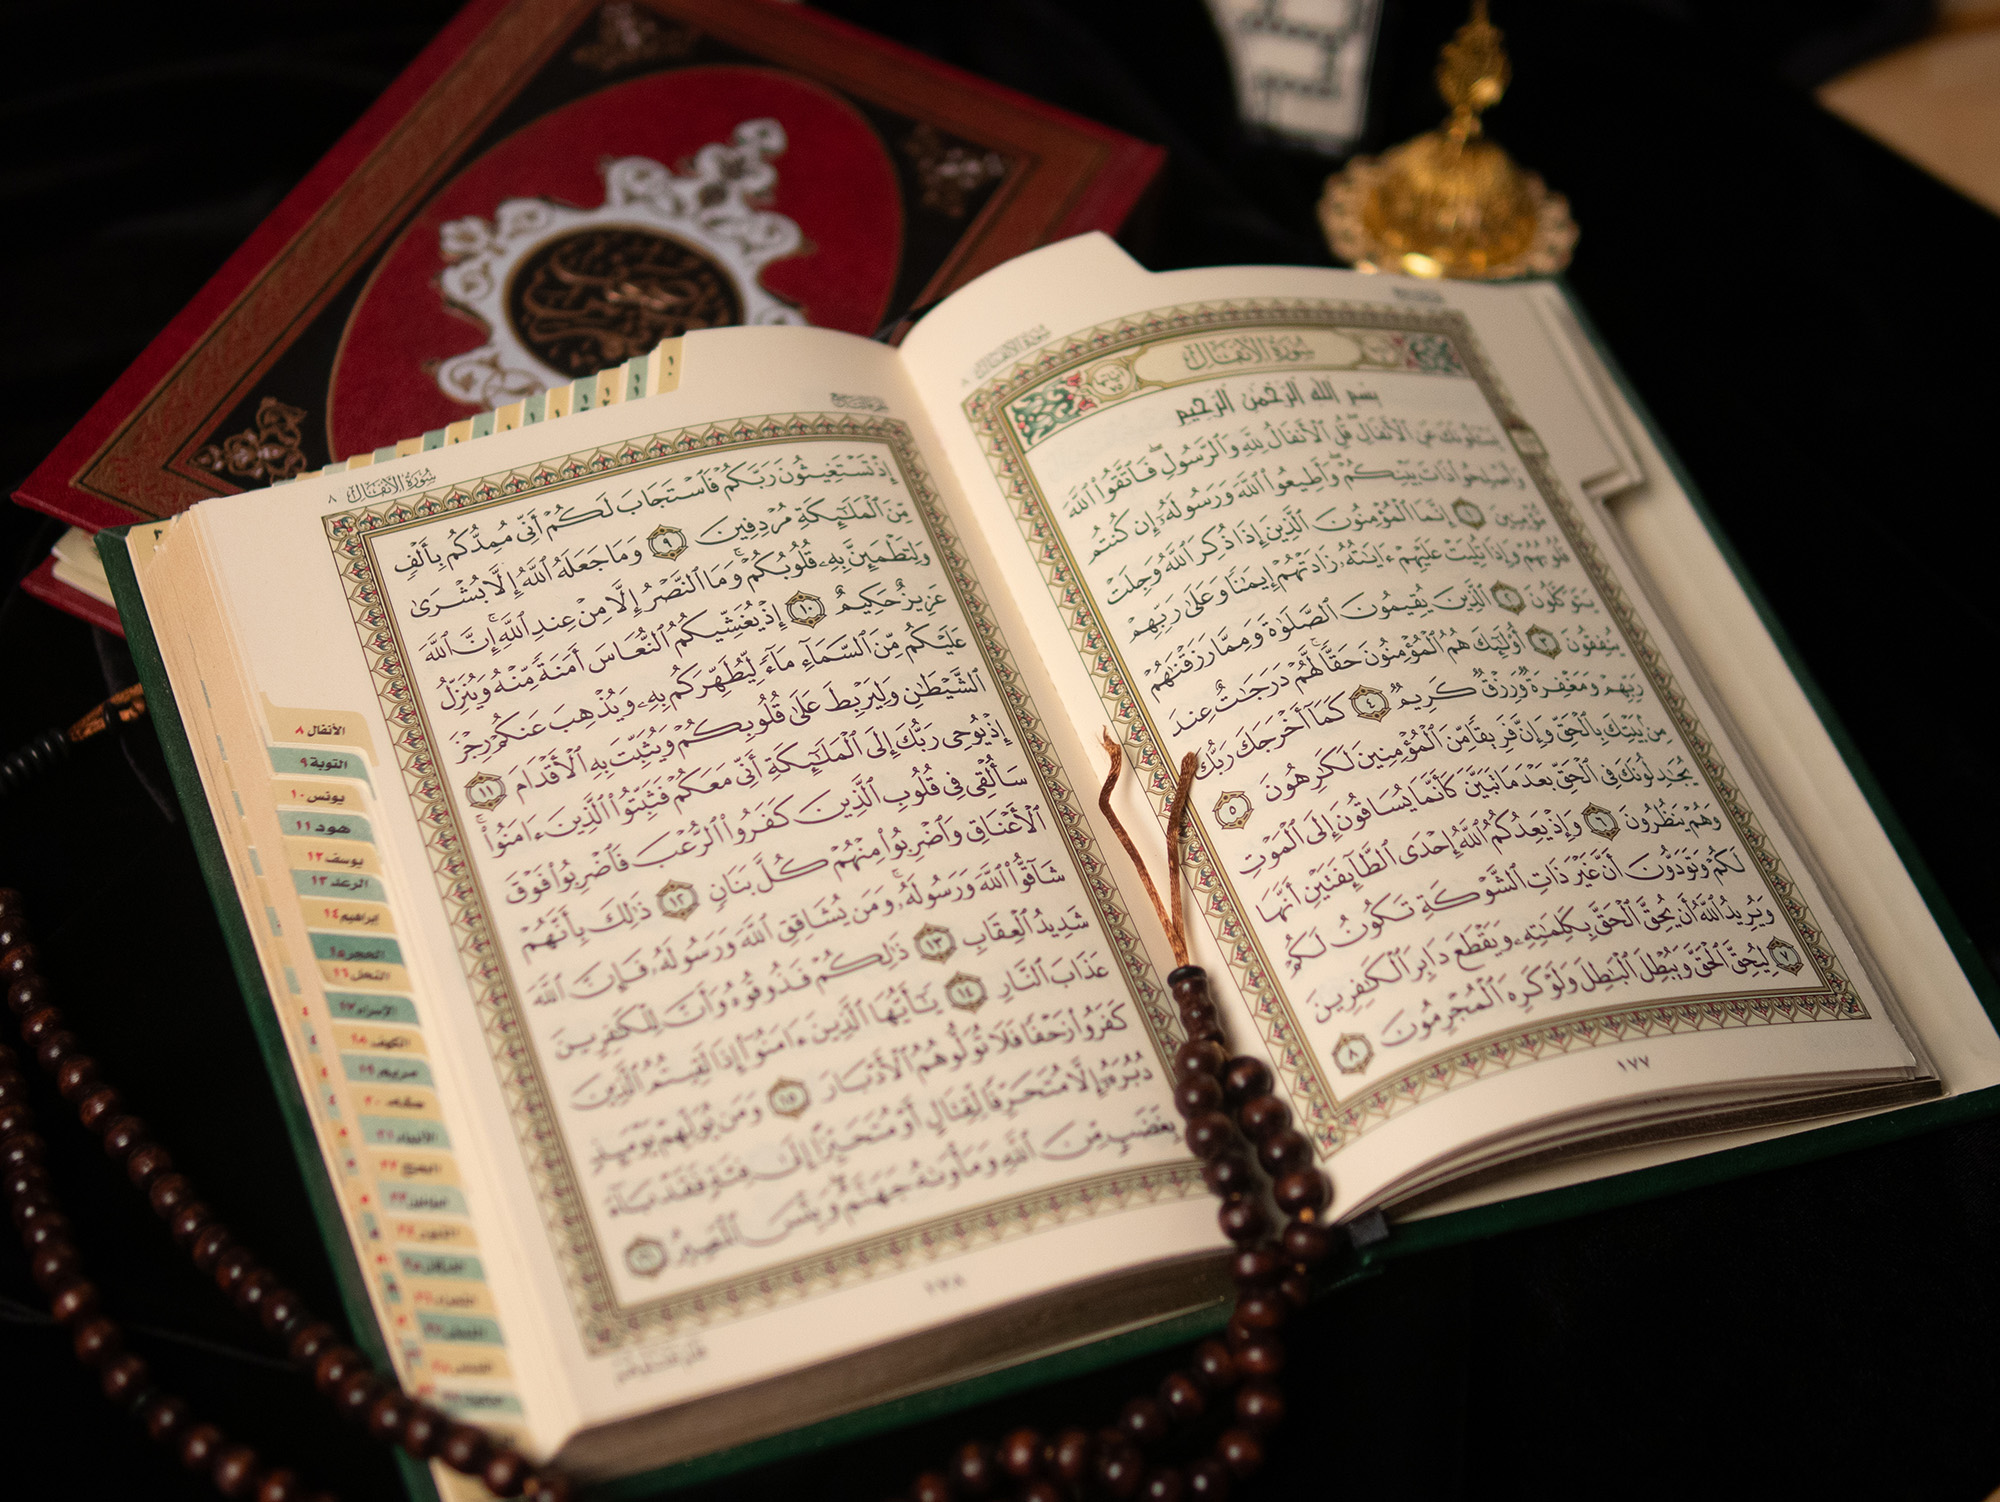 سُورَةُ الأَنفَالِ
بِسْمِ اللَّهِ الرَّحْمَٰنِ الرَّحِيمِ
يَسْـَٔلُونَكَ عَنِ ٱلْأَنفَالِ ۖ قُلِ ٱلْأَنفَالُ لِلَّهِ وَٱلرَّسُولِ ۖ فَٱتَّقُوا۟ ٱللَّهَ
وَأَصْلِحُوا۟ ذَاتَ بَيْنِكُمْ ۖ وَأَطِيعُوا۟ ٱللَّهَ وَرَسُولَهُۥٓ إِن كُنتُم
مُّؤْمِنِينَ ١ إِنَّمَا ٱلْمُؤْمِنُونَ ٱلَّذِينَ إِذَا ذُكِرَ ٱللَّهُ وَجِلَتْ
قُلُوبُهُمْ وَإِذَا تُلِيَتْ عَلَيْهِمْ ءَايَٰتُهُۥ زَادَتْهُمْ إِيمَٰنًا وَعَلَىٰ رَبِّهِمْ
يَتَوَكَّلُونَ ٢ ٱلَّذِينَ يُقِيمُونَ ٱلصَّلَوٰةَ وَمِمَّا رَزَقْنَٰهُمْ
يُنفِقُونَ ٣ أُو۟لَٰٓئِكَ هُمُ ٱلْمُؤْمِنُونَ حَقًّا ۚ لَّهُمْ دَرَجَٰتٌ عِندَ
رَبِّهِمْ وَمَغْفِرَةٌ وَرِزْقٌ كَرِيمٌ ٤ كَمَآ أَخْرَجَكَ رَبُّكَ
مِنۢ بَيْتِكَ بِٱلْحَقِّ وَإِنَّ فَرِيقًا مِّنَ ٱلْمُؤْمِنِينَ لَكَٰرِهُونَ ٥
يُجَٰدِلُونَكَ فِى ٱلْحَقِّ بَعْدَ مَا تَبَيَّنَ كَأَنَّمَا يُسَاقُونَ إِلَى ٱلْمَوْتِ
وَهُمْ يَنظُرُونَ ٦ وَإِذْ يَعِدُكُمُ ٱللَّهُ إِحْدَى ٱلطَّآئِفَتَيْنِ أَنَّهَا
لَكُمْ وَتَوَدُّونَ أَنَّ غَيْرَ ذَاتِ ٱلشَّوْكَةِ تَكُونُ لَكُمْ
وَيُرِيدُ ٱللَّهُ أَن يُحِقَّ ٱلْحَقَّ بِكَلِمَٰتِهِۦ وَيَقْطَعَ دَابِرَ ٱلْكَٰفِرِينَ
٧ لِيُحِقَّ ٱلْحَقَّ وَيُبْطِلَ ٱلْبَٰطِلَ وَلَوْ كَرِهَ ٱلْمُجْرِمُونَ ٨
١٧٧
سُورَةُ الأَنفَالِ ٨
إِذْ تَسْتَغِيثُونَ رَبَّكُمْ فَٱسْتَجَابَ لَكُمْ أَنِّى مُمِدُّكُم بِأَلْفٍ
مِّنَ ٱلْمَلَٰٓئِكَةِ مُرْدِفِينَ ٩ وَمَا جَعَلَهُ ٱللَّهُ إِلَّا بُشْرَىٰ
وَلِتَطْمَئِنَّ بِهِۦ قُلُوبُكُمْ ۚ وَمَا ٱلنَّصْرُ إِلَّا مِنْ عِندِ ٱللَّهِ ۚ إِنَّ ٱللَّهَ
عَزِيزٌ حَكِيمٌ ١٠ إِذْ يُغَشِّيكُمُ ٱلنُّعَاسَ أَمَنَةً مِّنْهُ وَيُنَزِّلُ
عَلَيْكُم مِّنَ ٱلسَّمَآءِ مَآءً لِّيُطَهِّرَكُم بِهِۦ وَيُذْهِبَ عَنكُمْ رِجْزَ
ٱلشَّيْطَٰنِ وَلِيَرْبِطَ عَلَىٰ قُلُوبِكُمْ وَيُثَبِّتَ بِهِ ٱلْأَقْدَامَ ١١
إِذْ يُوحِى رَبُّكَ إِلَى ٱلْمَلَٰٓئِكَةِ أَنِّى مَعَكُمْ فَثَبِّتُوا۟ ٱلَّذِينَ ءَامَنُوا۟ ۚ
سَأُلْقِى فِى قُلُوبِ ٱلَّذِينَ كَفَرُوا۟ ٱلرُّعْبَ فَٱضْرِبُوا۟ فَوْقَ
ٱلْأَعْنَاقِ وَٱضْرِبُوا۟ مِنْهُمْ كُلَّ بَنَانٍ ١٢ ذَٰلِكَ بِأَنَّهُمْ
شَآقُّوا۟ ٱللَّهَ وَرَسُولَهُۥ ۚ وَمَن يُشَاقِقِ ٱللَّهَ وَرَسُولَهُۥ فَإِنَّ ٱللَّهَ
شَدِيدُ ٱلْعِقَابِ ١٣ ذَٰلِكُمْ فَذُوقُوهُ وَأَنَّ لِلْكَٰفِرِينَ
عَذَابَ ٱلنَّارِ ١٤ يَٰٓأَيُّهَا ٱلَّذِينَ ءَامَنُوٓا۟ إِذَا لَقِيتُمُ ٱلَّذِينَ
كَفَرُوا۟ زَحْفًا فَلَا تُوَلُّوهُمُ ٱلْأَدْبَارَ ١٥ وَمَن يُوَلِّهِمْ يَوْمَئِذٍ
دُبُرَهُۥٓ إِلَّا مُتَحَرِّفًا لِّقِتَالٍ أَوْ مُتَحَيِّزًا إِلَىٰ فِئَةٍ فَقَدْ بَآءَ
بِغَضَبٍ مِّنَ ٱللَّهِ وَمَأْوَىٰهُ جَهَنَّمُ ۖ وَبِئْسَ ٱلْمَصِيرُ ١٦
١٧٨
الأنفال ٨
التوبة ٩
يونس ١٠
هود ١١
يوسف ١٢
الرعد ١٣
إبراهيم ١٤
الحجر ١٥
النحل ١٦
الإسراء ١٧
الكهف ١٨
مريم ١٩
طه ٢٠
الأنبياء ٢١
الحج ٢٢